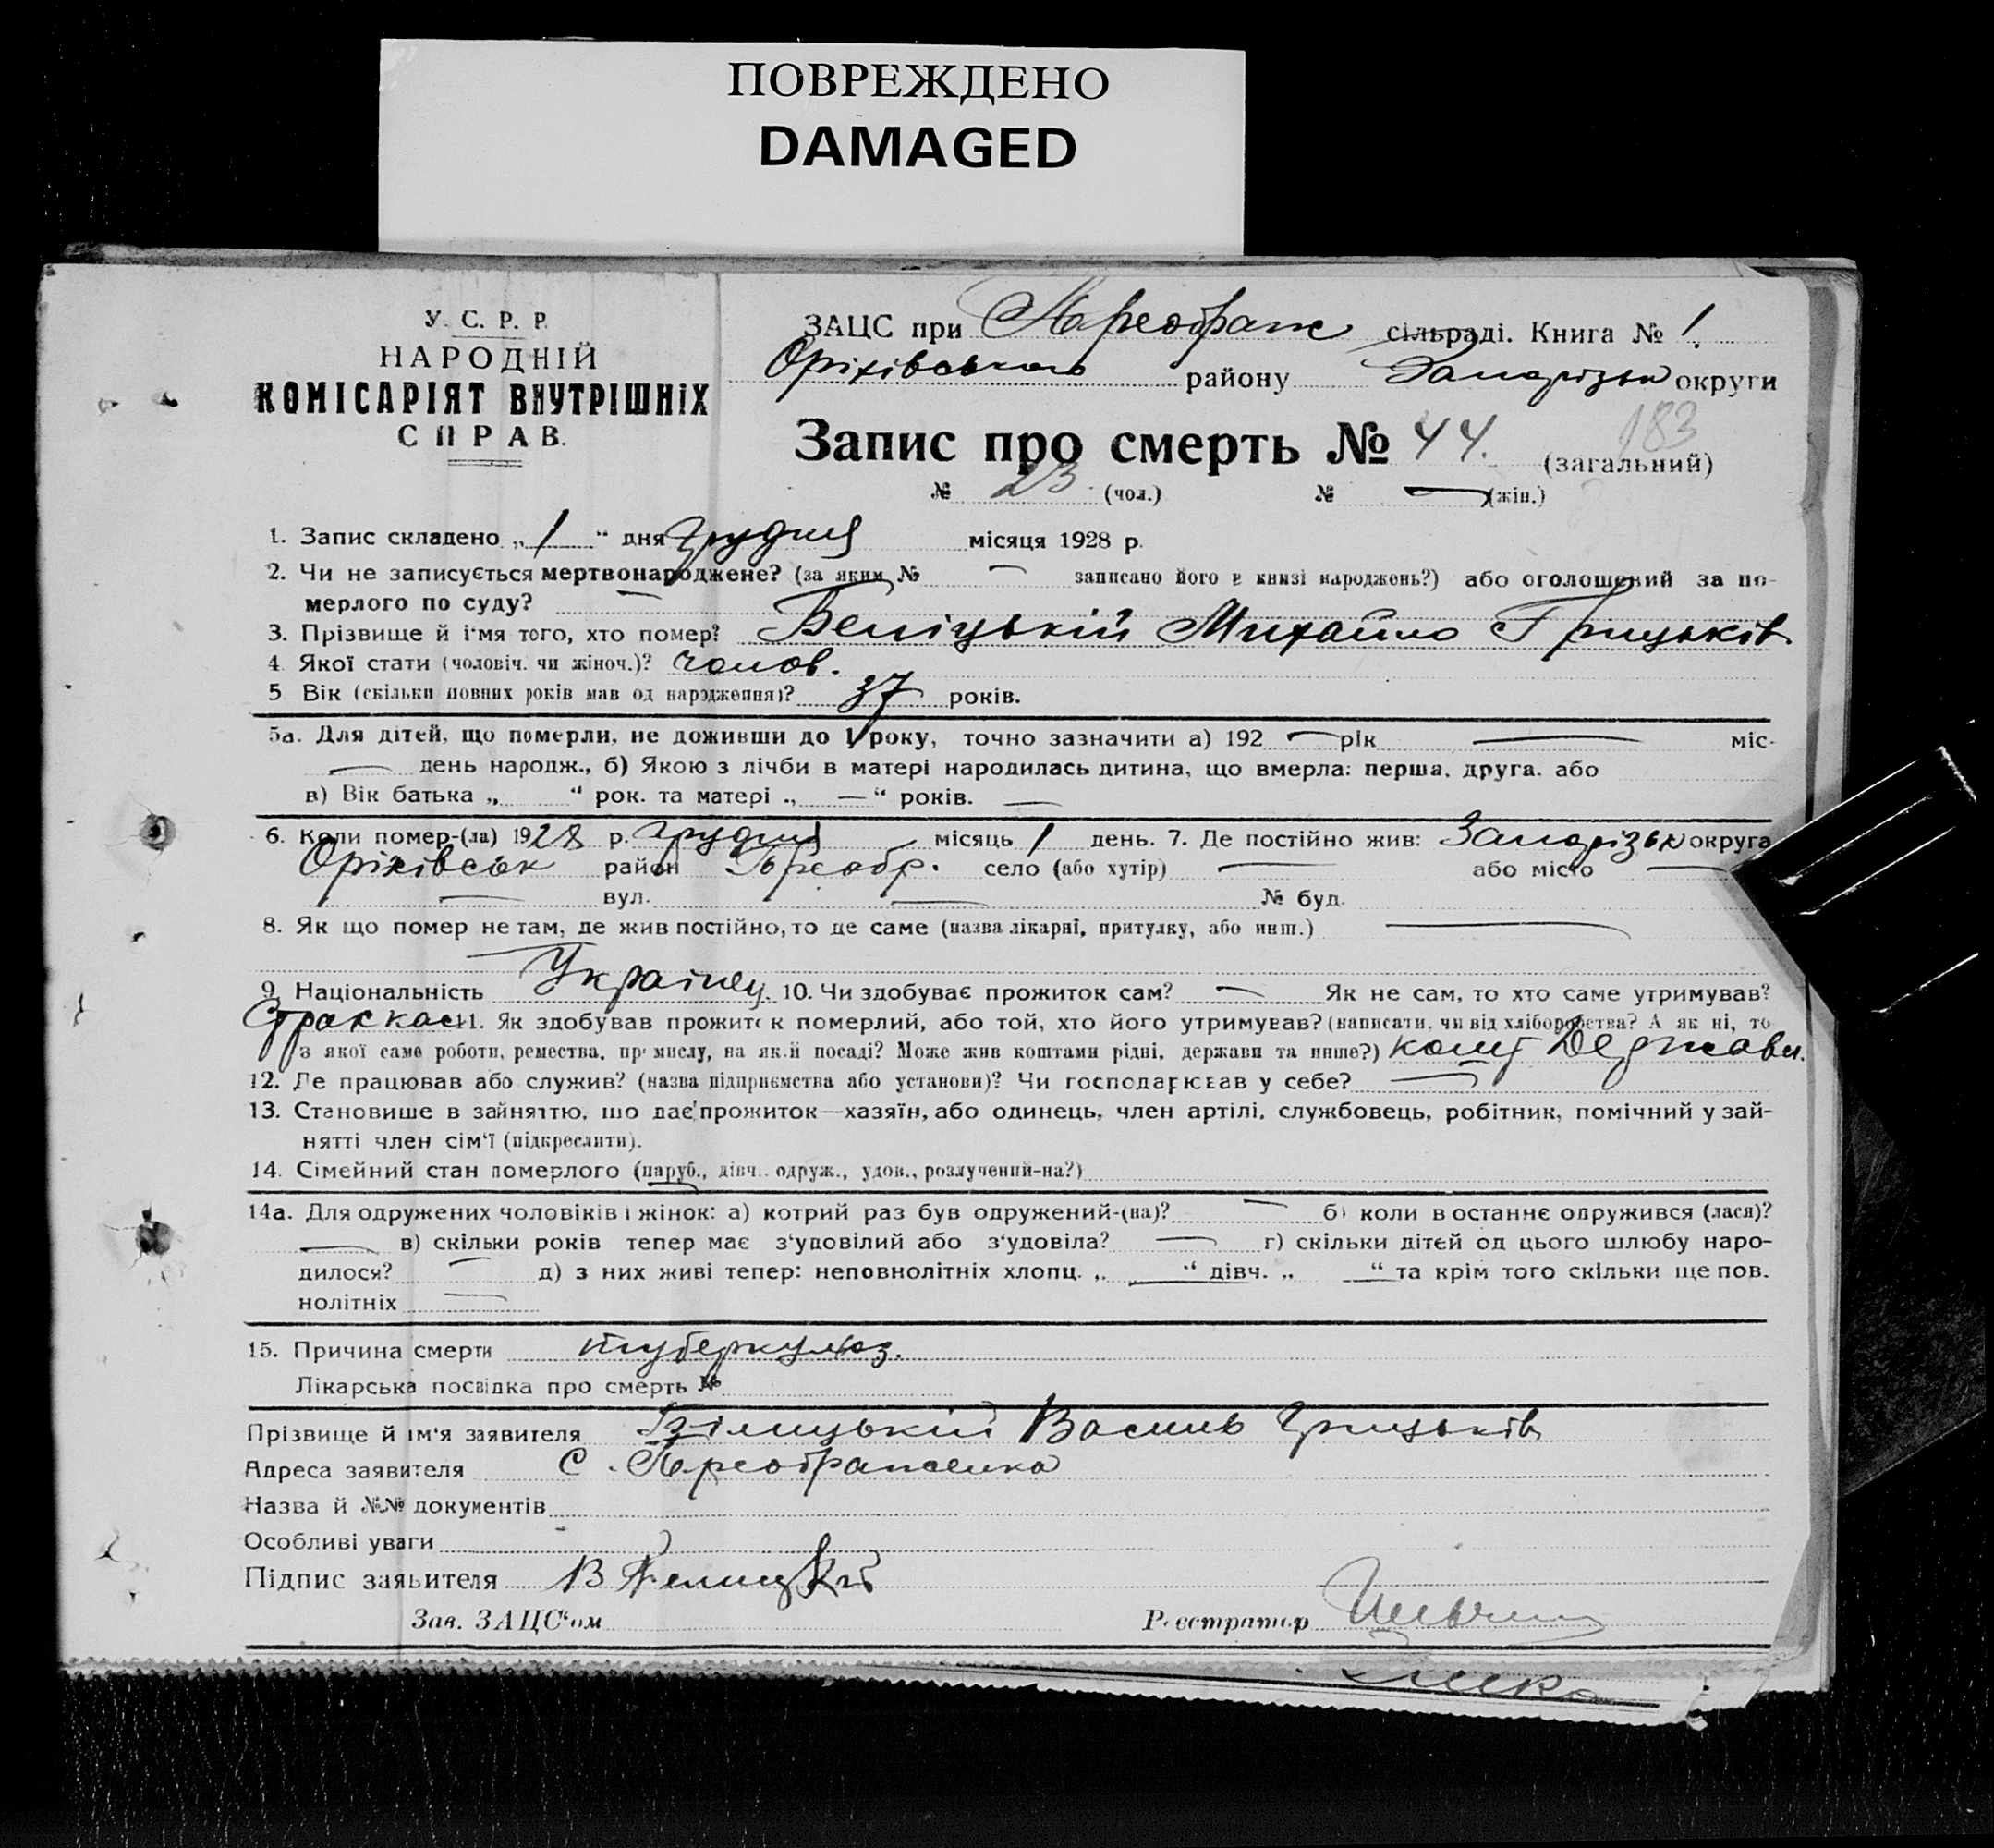 ПОВРЕЖДЕНО
DAMAGED
У. С. Р. Р.
НАРОДНІЙ
КОМІСАРІЯТ ВНУТРІШНІХ
СПРАВ.
ЗАЦС при Преображ сільраді. Книга № 1.
Оріхівського району Запорізьк округи
Запис про смерть № 44. (загальний)
183
№ 23 (чол.) № — (жін.)
1. Запис складено „ 1 “ дня грудня місяця 1928 р.
2. Чи не записується мертвонароджене? (за яким № — записано його в книзі народжень?) або оголошений за по-
мерлого по суду? —
3. Прізвище й і'мя того, хто помер? Беліцькій Михайло Грицьків
4. Якої стати (чоловіч. чи жіноч.)? чолов.
5 Вік (скільки повних років мав од народження)? 37 років.
5а. Для дітей, що померли, не доживши до 1 року, точно зазначити а) 192 — рік — міс.
— день народж., б) Якою з лічби в матері народилась дитина, що вмерла: перша, друга. або
в) Вік батька „ “ рок. та матері „ — “ років. —
6. Коли помер-(ла) 1928 р. грудня місяць 1 день. 7. Де постійно жив: Запорізьк округа
Оріхівськ район Преобр. село (або хутір) — або місто —
— вул. — № буд.
8. Як що помер не там, де жив постійно, то де саме (назва лікарні, притулку, або инш.) —
9. Національність Українец. 10. Чи здобуває прожиток сам? — Як не сам, то хто саме утримував?
Страхкаси 11. Як здобував прожиток померлий, або той, хто його утримував? (написати, чи від хліборобства? А як ні, то
з якої саме роботи, ремества, промислу, на якій посаді? Може жив коштами рідні, держави та инше?) кошт Держави.
12. Де працював або служив? (назва підприємства або установи)? Чи господарював у себе? —
13. Становище в зайняттю, що дає прожиток—хазяїн, або одинець, член артілі, службовець, робітник, помічний у зай-
нятті член сім'ї (підкреслити).
14. Сімейний стан померлого (паруб., дівч. одруж., удов., розлучений-на?)
14а. Для одружених чоловіків і жінок: а) котрий раз був одружений-(на)? — б) коли в останнє одружився (лася)?
— в) скільки років тепер має з'удовілий або з'удовіла? — г) скільки дітей од цього шлюбу наро-
дилося? — д) з них живі тепер: неповнолітніх хлопц. „ — “ дівч. „ — “ та крім того скільки ще пов.
нолітніх —
15. Причина смерти туберкульоз.
Лікарська посвідка про смерть №
Прізвище й ім'я заявителя Біліцькій Василь Грицьків
Адреса заявителя С. Преображенка
Назва й №№ документів
Особливі уваги
Підпис заявителя В Белицкий
Зав. ЗАЦС'ом Реєстратор